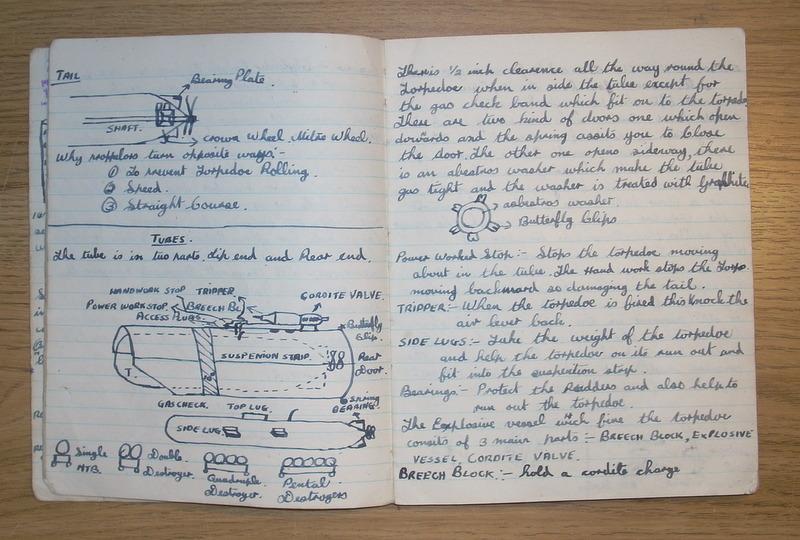 TAIL
Bearing Plate.
SHAFT.
Crown Wheel. Mitre Wheel.
Why propellors turn opposite ways:-
① To prevent Torpedoe Rolling.
② Speed.
③ Straight Course.
TUBES.
The tube is in two parts. Lip end and Rear end.
HANDWORK STOP TRIPPER
CORDITE VALVE.
POWER WORK STOP BREECH BL
ACCESS PLUGS
Butterfly
Clip.
SUSPENION STRIP.
Rear
Door.
T.
Spring
BEARING.
GASCHECK. TOP LUG.
SIDE LUG
Single
MTB.
Double.
Destroyer.
Quadruple
Destroyer.
Pental
Destroyers
Theris 1/2 inch clearence all the way round the
Torpedoe when in side the tube except for
the gas check band which fit on to the torpedo
There are two kind of doors one which open
dowards and the spring assits you to close
the door. The other one opens sideway, there
is an abestros washer which make the tube
gas tight and the washer is treated with Graphite
asbestros washer.
Butterfly Clips
Power Worked Stop:- Stops the torpedoe moving
about in the tube. The Hand work stops the Torp.
moving backward so damaging the tail.
TRIPPER:- When the torpedoe is fired this knock the
air lever back.
SIDE LUGS:- Take the weight of the torpedoe
and help the torpedoe on its run out and
fit into the suspention strip.
Bearings:- Protect the Rudders and also help to
run out the torpedoe.
The Explosive vessel wich fire the torpedoe
consits of 3 main parts:- BREECH BLOCK, EXPLOSIVE
VESSEL CORDITE VALVE.
BREECH BLOCK:- hold a cordite charge